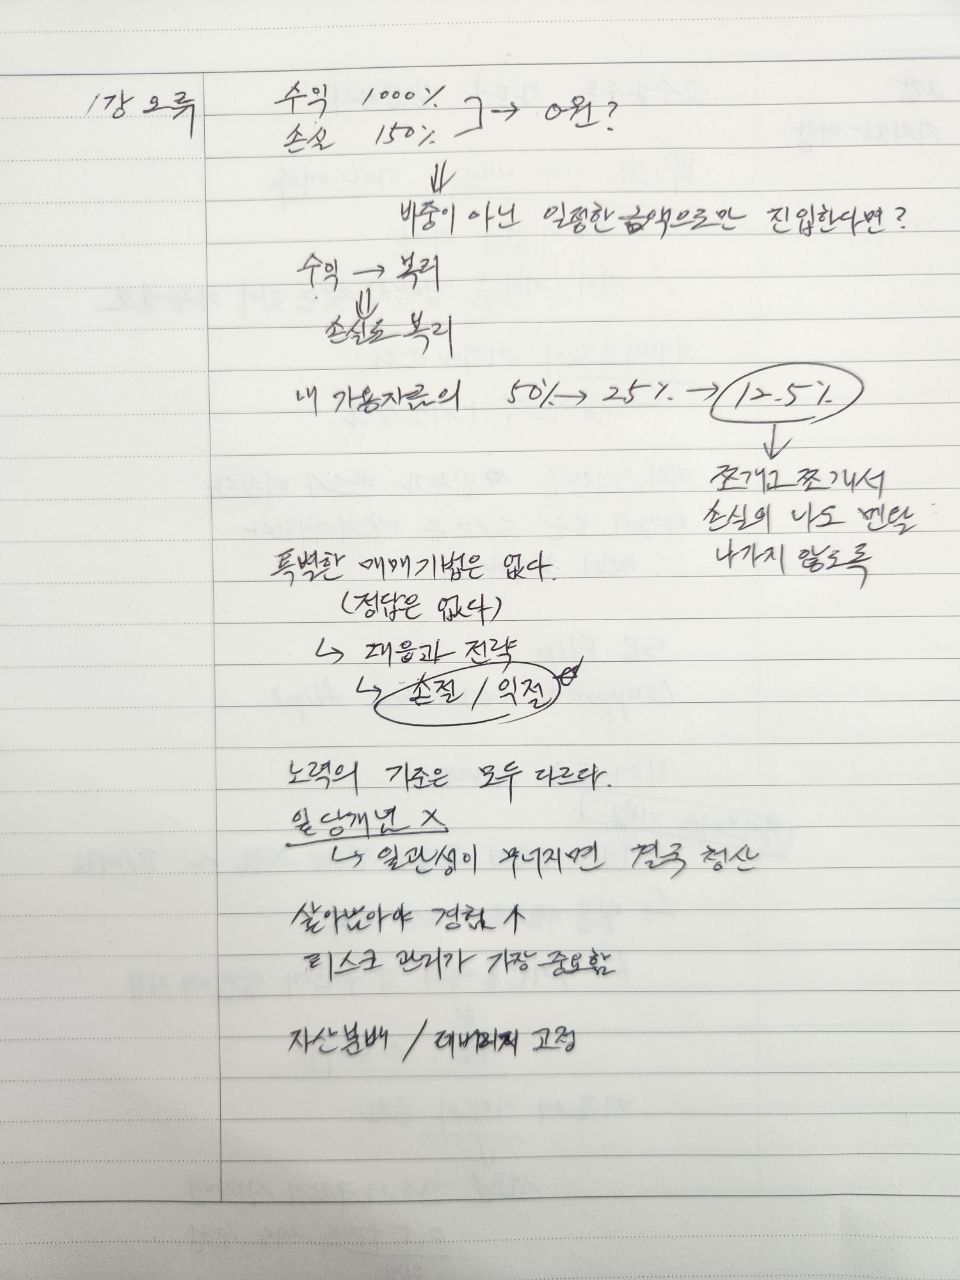 1강 오류
수익 1000%
손실 150% → 0원?
⇓
비중이 아닌 일정한 금액으로만 진입한다면?
수익 → 복리
⇓
손실도 복리
내 가용자금의 50% → 25% → 12.5%
↓
쪼개고 쪼개서
손실의 나도 멘탈
나가지 않도록
특별한 매매기법은 없다.
(정답은 없다)
↳ 대응과 전략
↳ 손절 / 익절
노력의 기준은 모두 다르다.
일당개념 X
↳ 일관성이 무너지면 결국 청산
살아남아야 경험 ↑
리스크 관리가 가장 중요함
자산분배 / 레버리지 고정